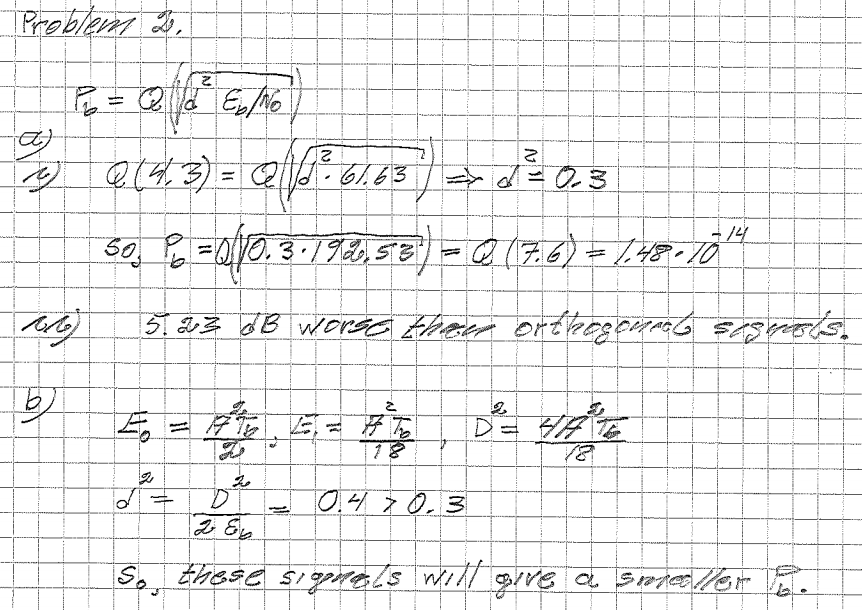 Problem 2.
P_b = Q(√(d² ε_b/N₀))
a)
i) Q(4.3) = Q(√(d² · 61.63)) ⇒ d² = 0.3
so, P_b = Q(√(0.3 · 192.53)) = Q(7.6) = 1.48 · 10⁻¹⁴
ii) 5.23 dB worse than orthogonal signals.
b)
E₀ = A²T_b/2, E₁ = A²T_b/18, D² = 4A²T_b/18
d² = D²/2ε_b = 0.4 > 0.3
So, these signals will give a smaller P_b.